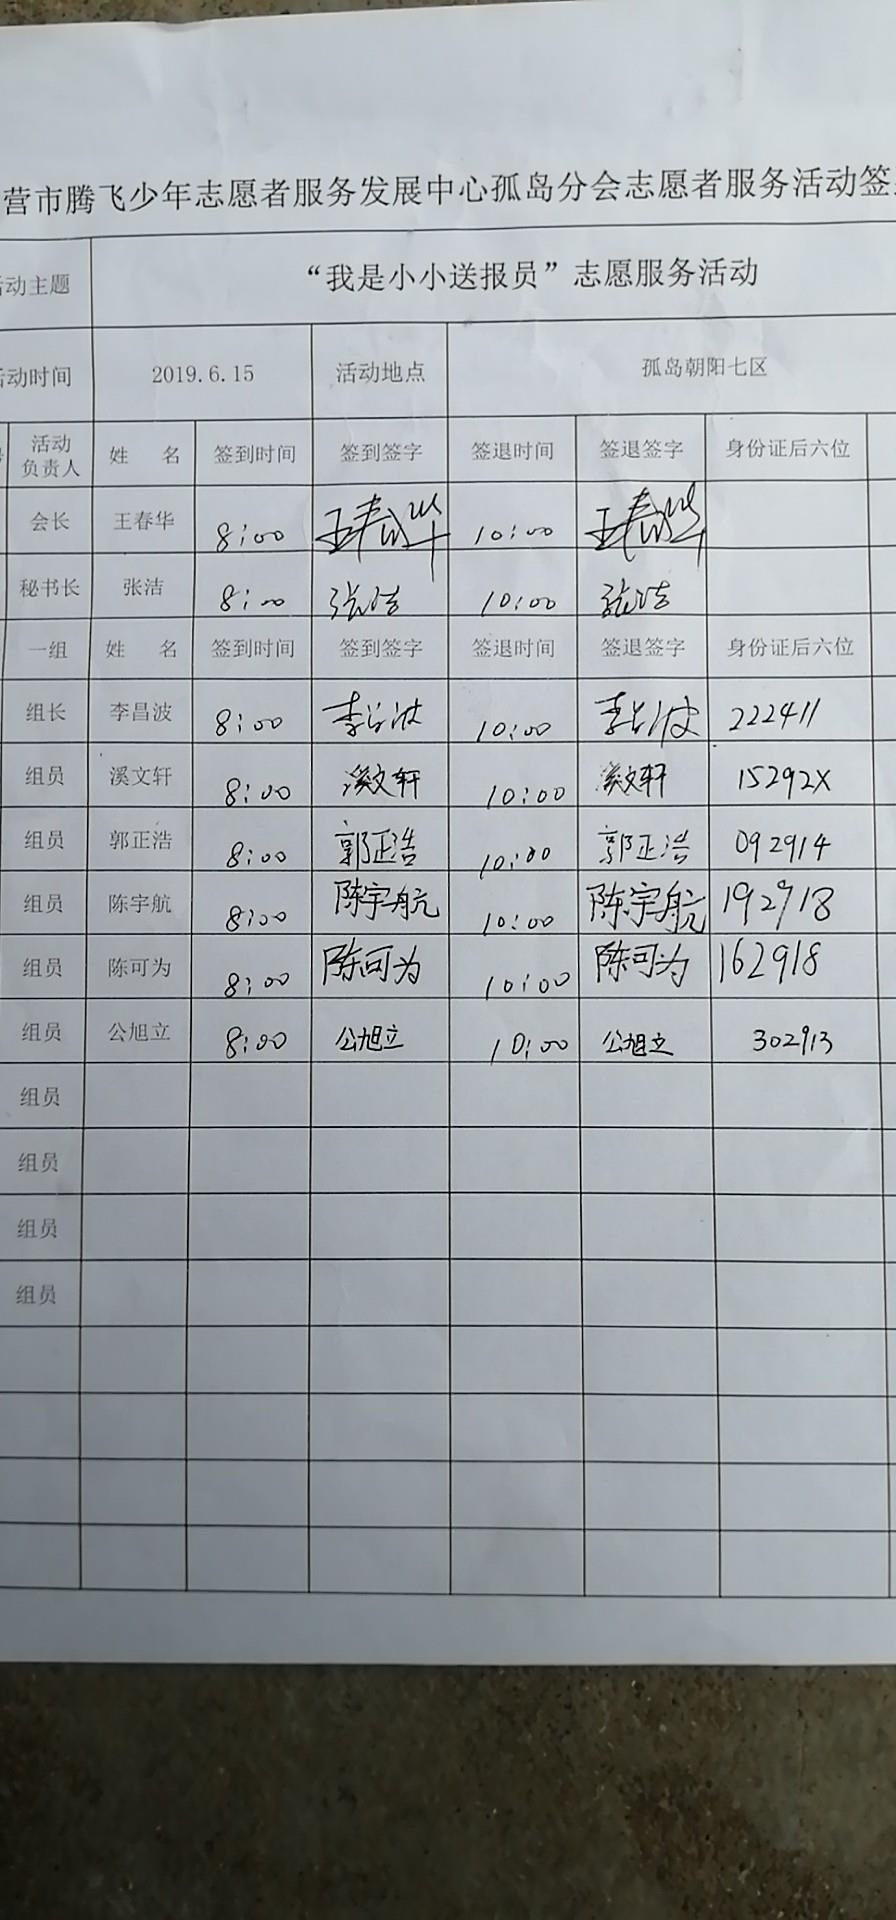 营市腾飞少年志愿者服务发展中心孤岛分会志愿者服务活动签
动主题 “我是小小送报员”志愿服务活动
动时间 2019.6.15 活动地点 孤岛朝阳七区
活动负责人 姓 名 签到时间 签到签字 签退时间 签退签字 身份证后六位
会长 王春华 8:00 王春华 10:00 王春华
秘书长 张洁 8:00 张洁 10:00 张洁
一组 姓 名 签到时间 签到签字 签退时间 签退签字 身份证后六位
组长 李昌波 8:00 李昌波 10:00 李昌波 222411
组员 溪文轩 8:00 溪文轩 10:00 溪文轩 15292X
组员 郭正浩 8:00 郭正浩 10:00 郭正浩 092914
组员 陈宇航 8:00 陈宇航 10:00 陈宇航 192918
组员 陈可为 8:00 陈可为 10:00 陈可为 162918
组员 公旭立 8:00 公旭立 10:00 公旭立 302913
组员
组员
组员
组员